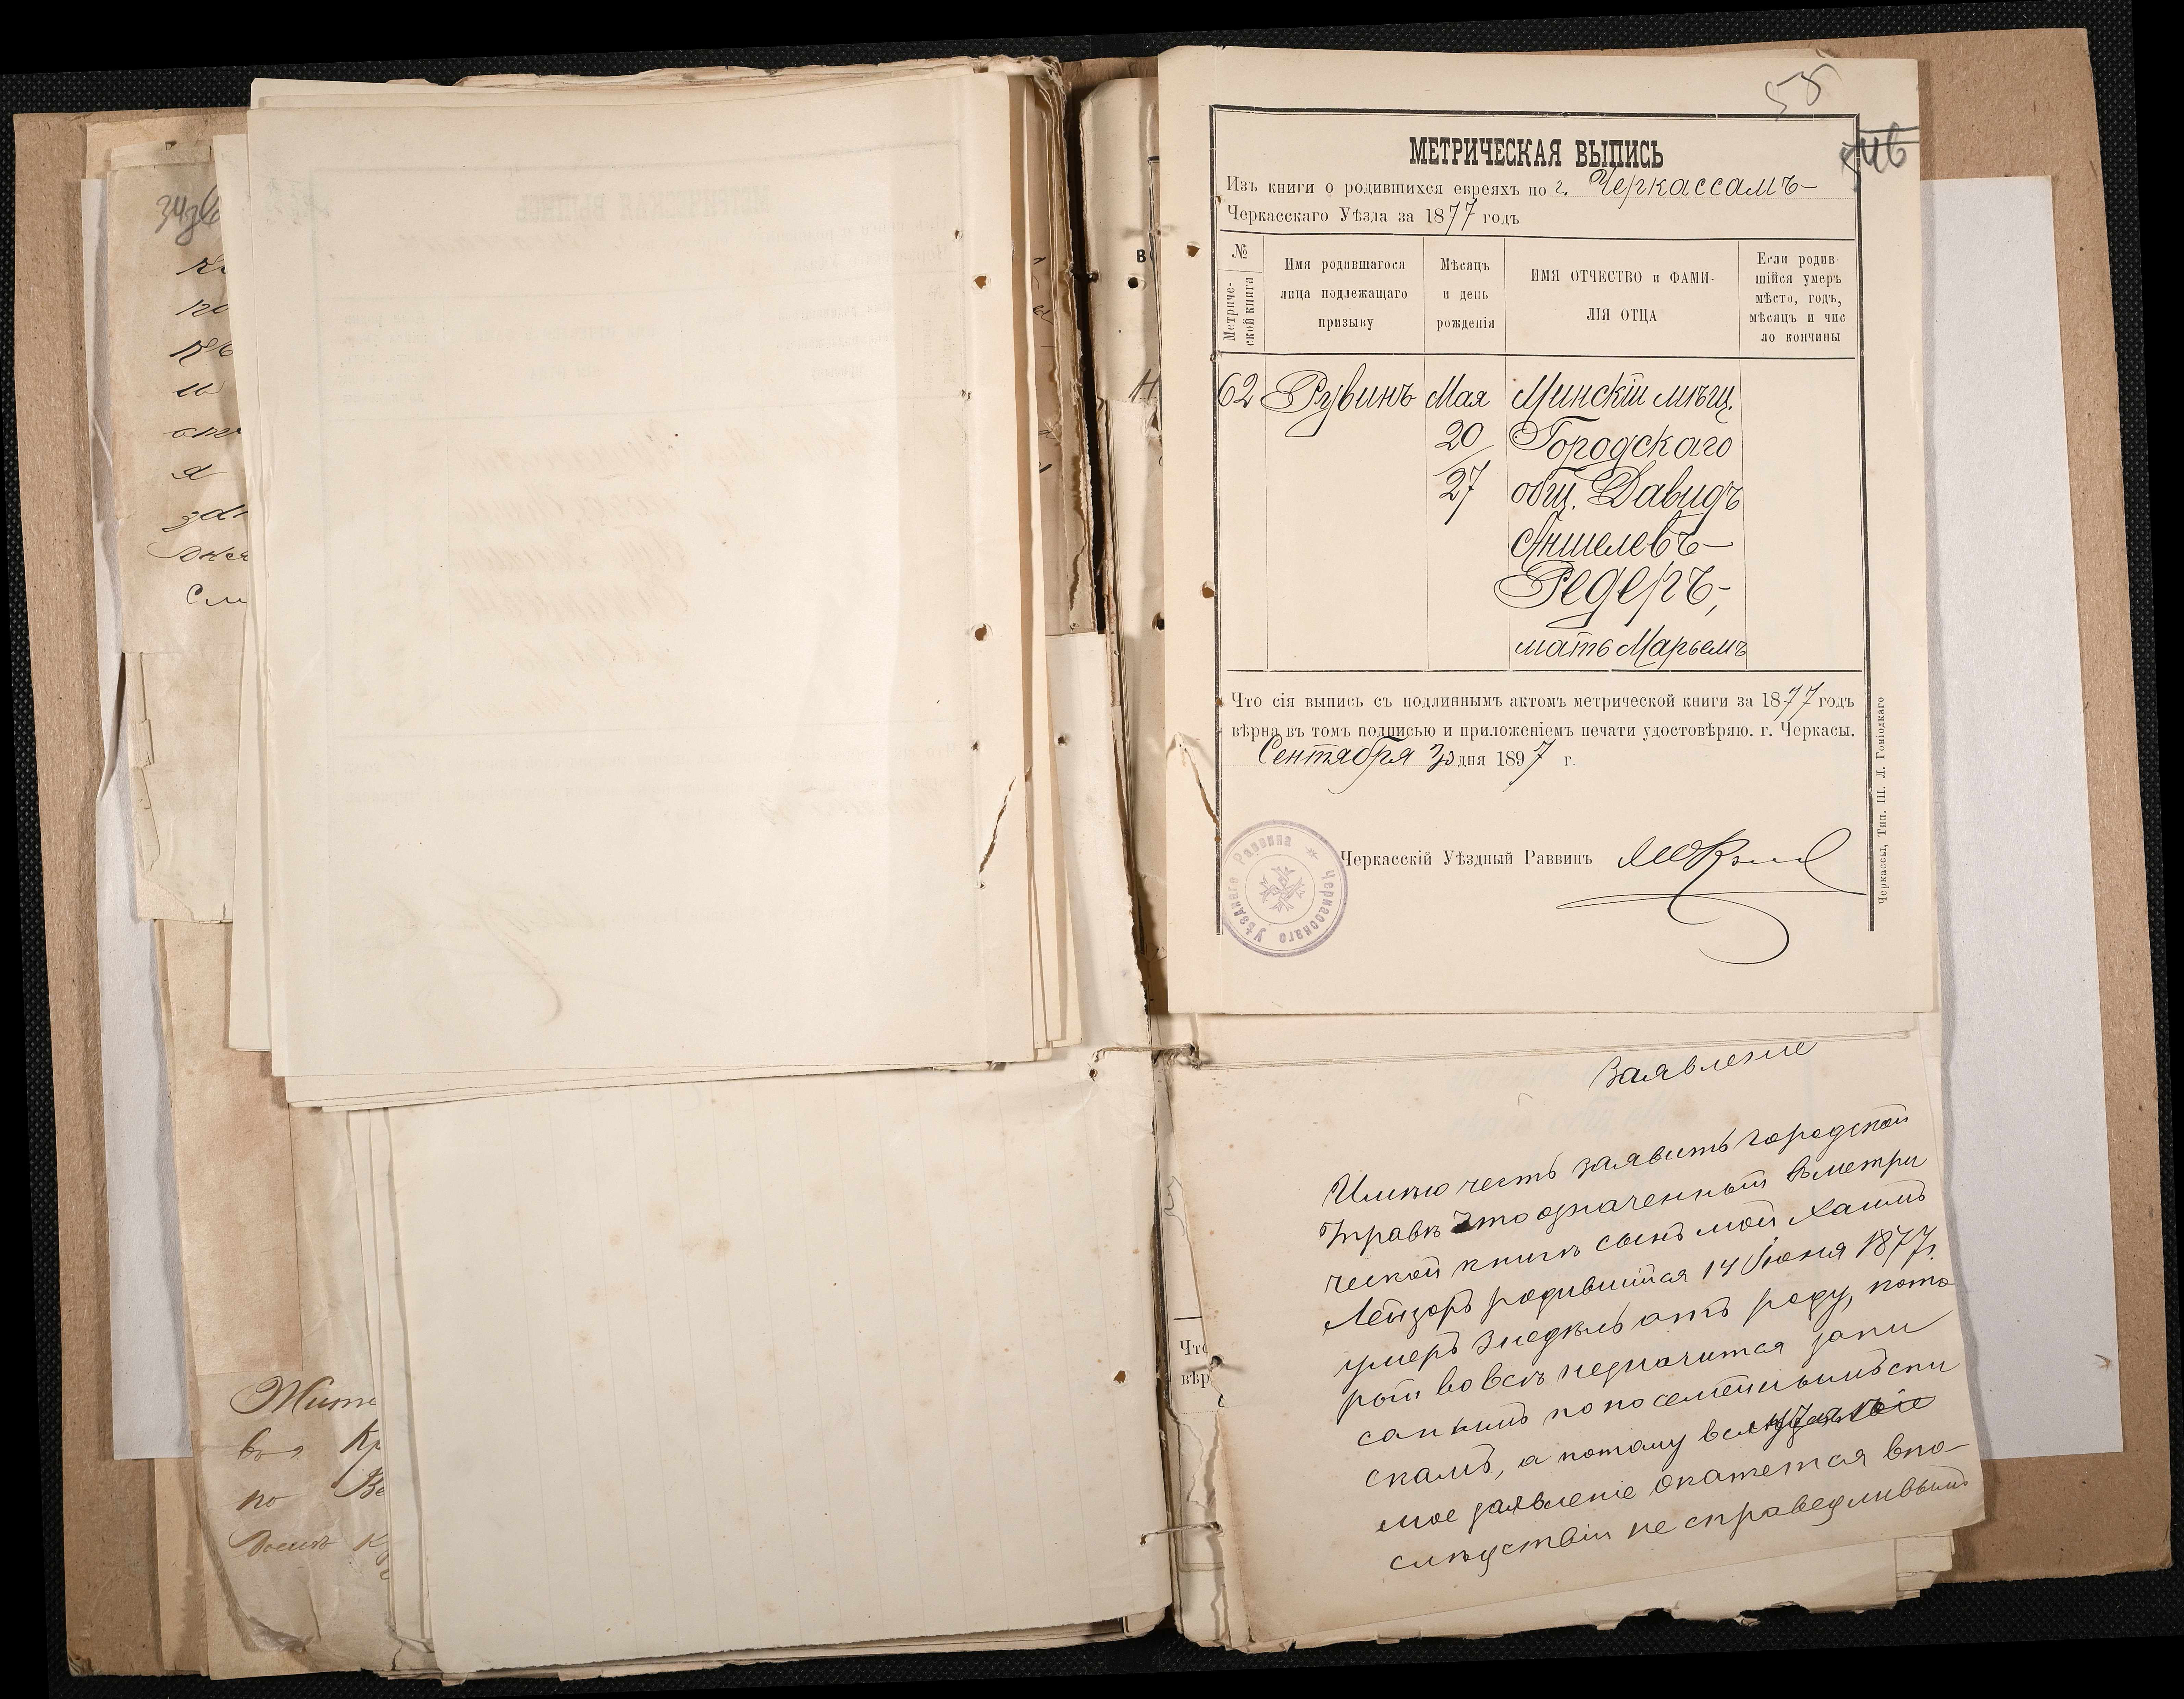 58
МЕТРИЧЕСКАЯ ВЫПИСЬ
Изъ книги о родившихся евреяхъ по г. Черкассамъ-
Черкасскаго Уѣзда за 1877 годъ
№ Метрической книги
Имя родившагося лица подлежащаго призыву
Мѣсяцъ и день рожденія
ИМЯ ОТЧЕСТВО и ФАМИЛІЯ ОТЦА
Если родившійся умеръ мѣсто, годъ, мѣсяцъ и число кончины
62 Рувинъ Мая Минскій мѣщ.
20 Городскаго
27 общ. Давидъ
Аншелевъ-
Редеръ-,
мать Марьемъ
Что сія выпись съ подлиннымъ актомъ метрической книги за 1877 годъ
вѣрна въ томъ подписью и приложеніемъ печати удостовѣряю. г. Черкасы.
Сентября 30 дня 1897 г.
Черкасскій Уѣздный Раввинъ
Черкасскаго Уѣзднаго Раввина
Черкассы, Тип. Ш. Л. Гоніодкаго
Заявленіе
Имѣю честь заявить городской
Управѣ Что означенный вметри
ческой книгѣ сынъ мой Хаимъ
Лейзоръ родившійся 14 Іюня 1877г.
умеръ 3 недѣль отъ роду, кото
рый вовсѣ незначится запи
саннымъ по посемейнымъ спи
скамъ, а потому
мое заявленіе окажется впо-
слѣдствіи не справедливымъ
Что
вѣр
Жите
Кр
по